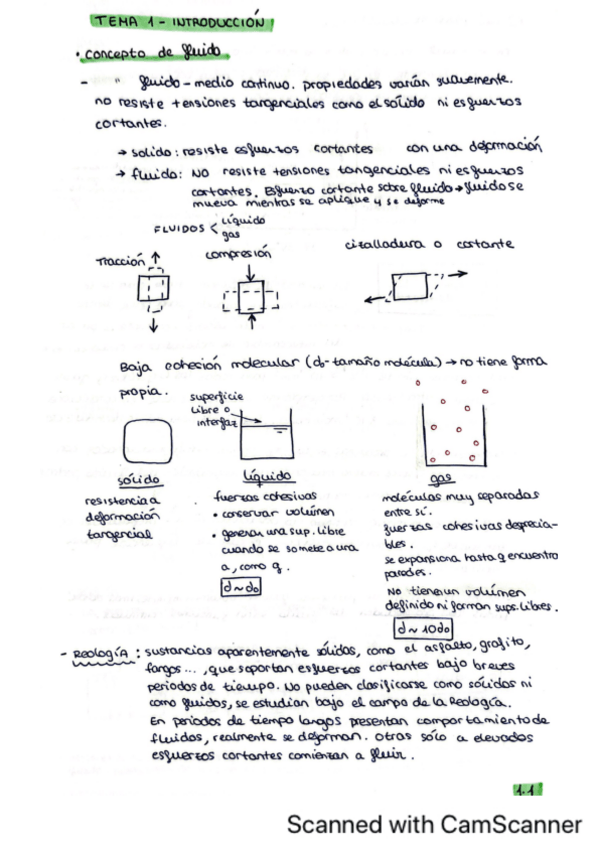 TEMA 1 - INTRODUCCIÓN
• concepto de fluido
- " fluido - medio continuo. propiedades varían suavemente.
no resiste tensiones tangenciales como el sólido ni esfuerzos
cortantes.
→ solido: resiste esfuerzos cortantes con una deformación
→ fluido: NO resiste tensiones tangenciales ni esfuerzos
cortantes. Esfuerzo cortante sobre fluido → fluido se
mueva mientras se aplique y se deforme
FLUIDOS < líquido
gas
Tracción
compresión
cizalladura o cortante
Baja cohesión molecular (do-tamaño molécula) → no tiene forma
propia.
superficie
libre o
interfaz
sólido
resistencia a
deformación
tangencial
líquido
fuerzas cohesivas
• conservar volúmen
• generan una sup. libre
cuando se somete a una
a, como g.
d ~ do
gas
moléculas muy separadas
entre sí.
fuerzas cohesivas desprecia-
bles.
se expansiona hasta q encuentro
paredes.
No tienen un volúmen
definido ni forman sups. libres.
d ~ 10do
- Reología: sustancias aparentemente sólidas, como el asfalto, grafito,
fangos..., que soportan esfuerzos cortantes bajo breves
periodos de tiempo. No pueden clasificarse como sólidos ni
como fluidos, se estudian bajo el campo de la Reología.
En periodos de tiempo largos presentan comportamiento de
fluidos, realmente se deforman. otras sólo a elevados
esfuerzos cortantes comienzan a fluir.
1.1
Scanned with CamScanner